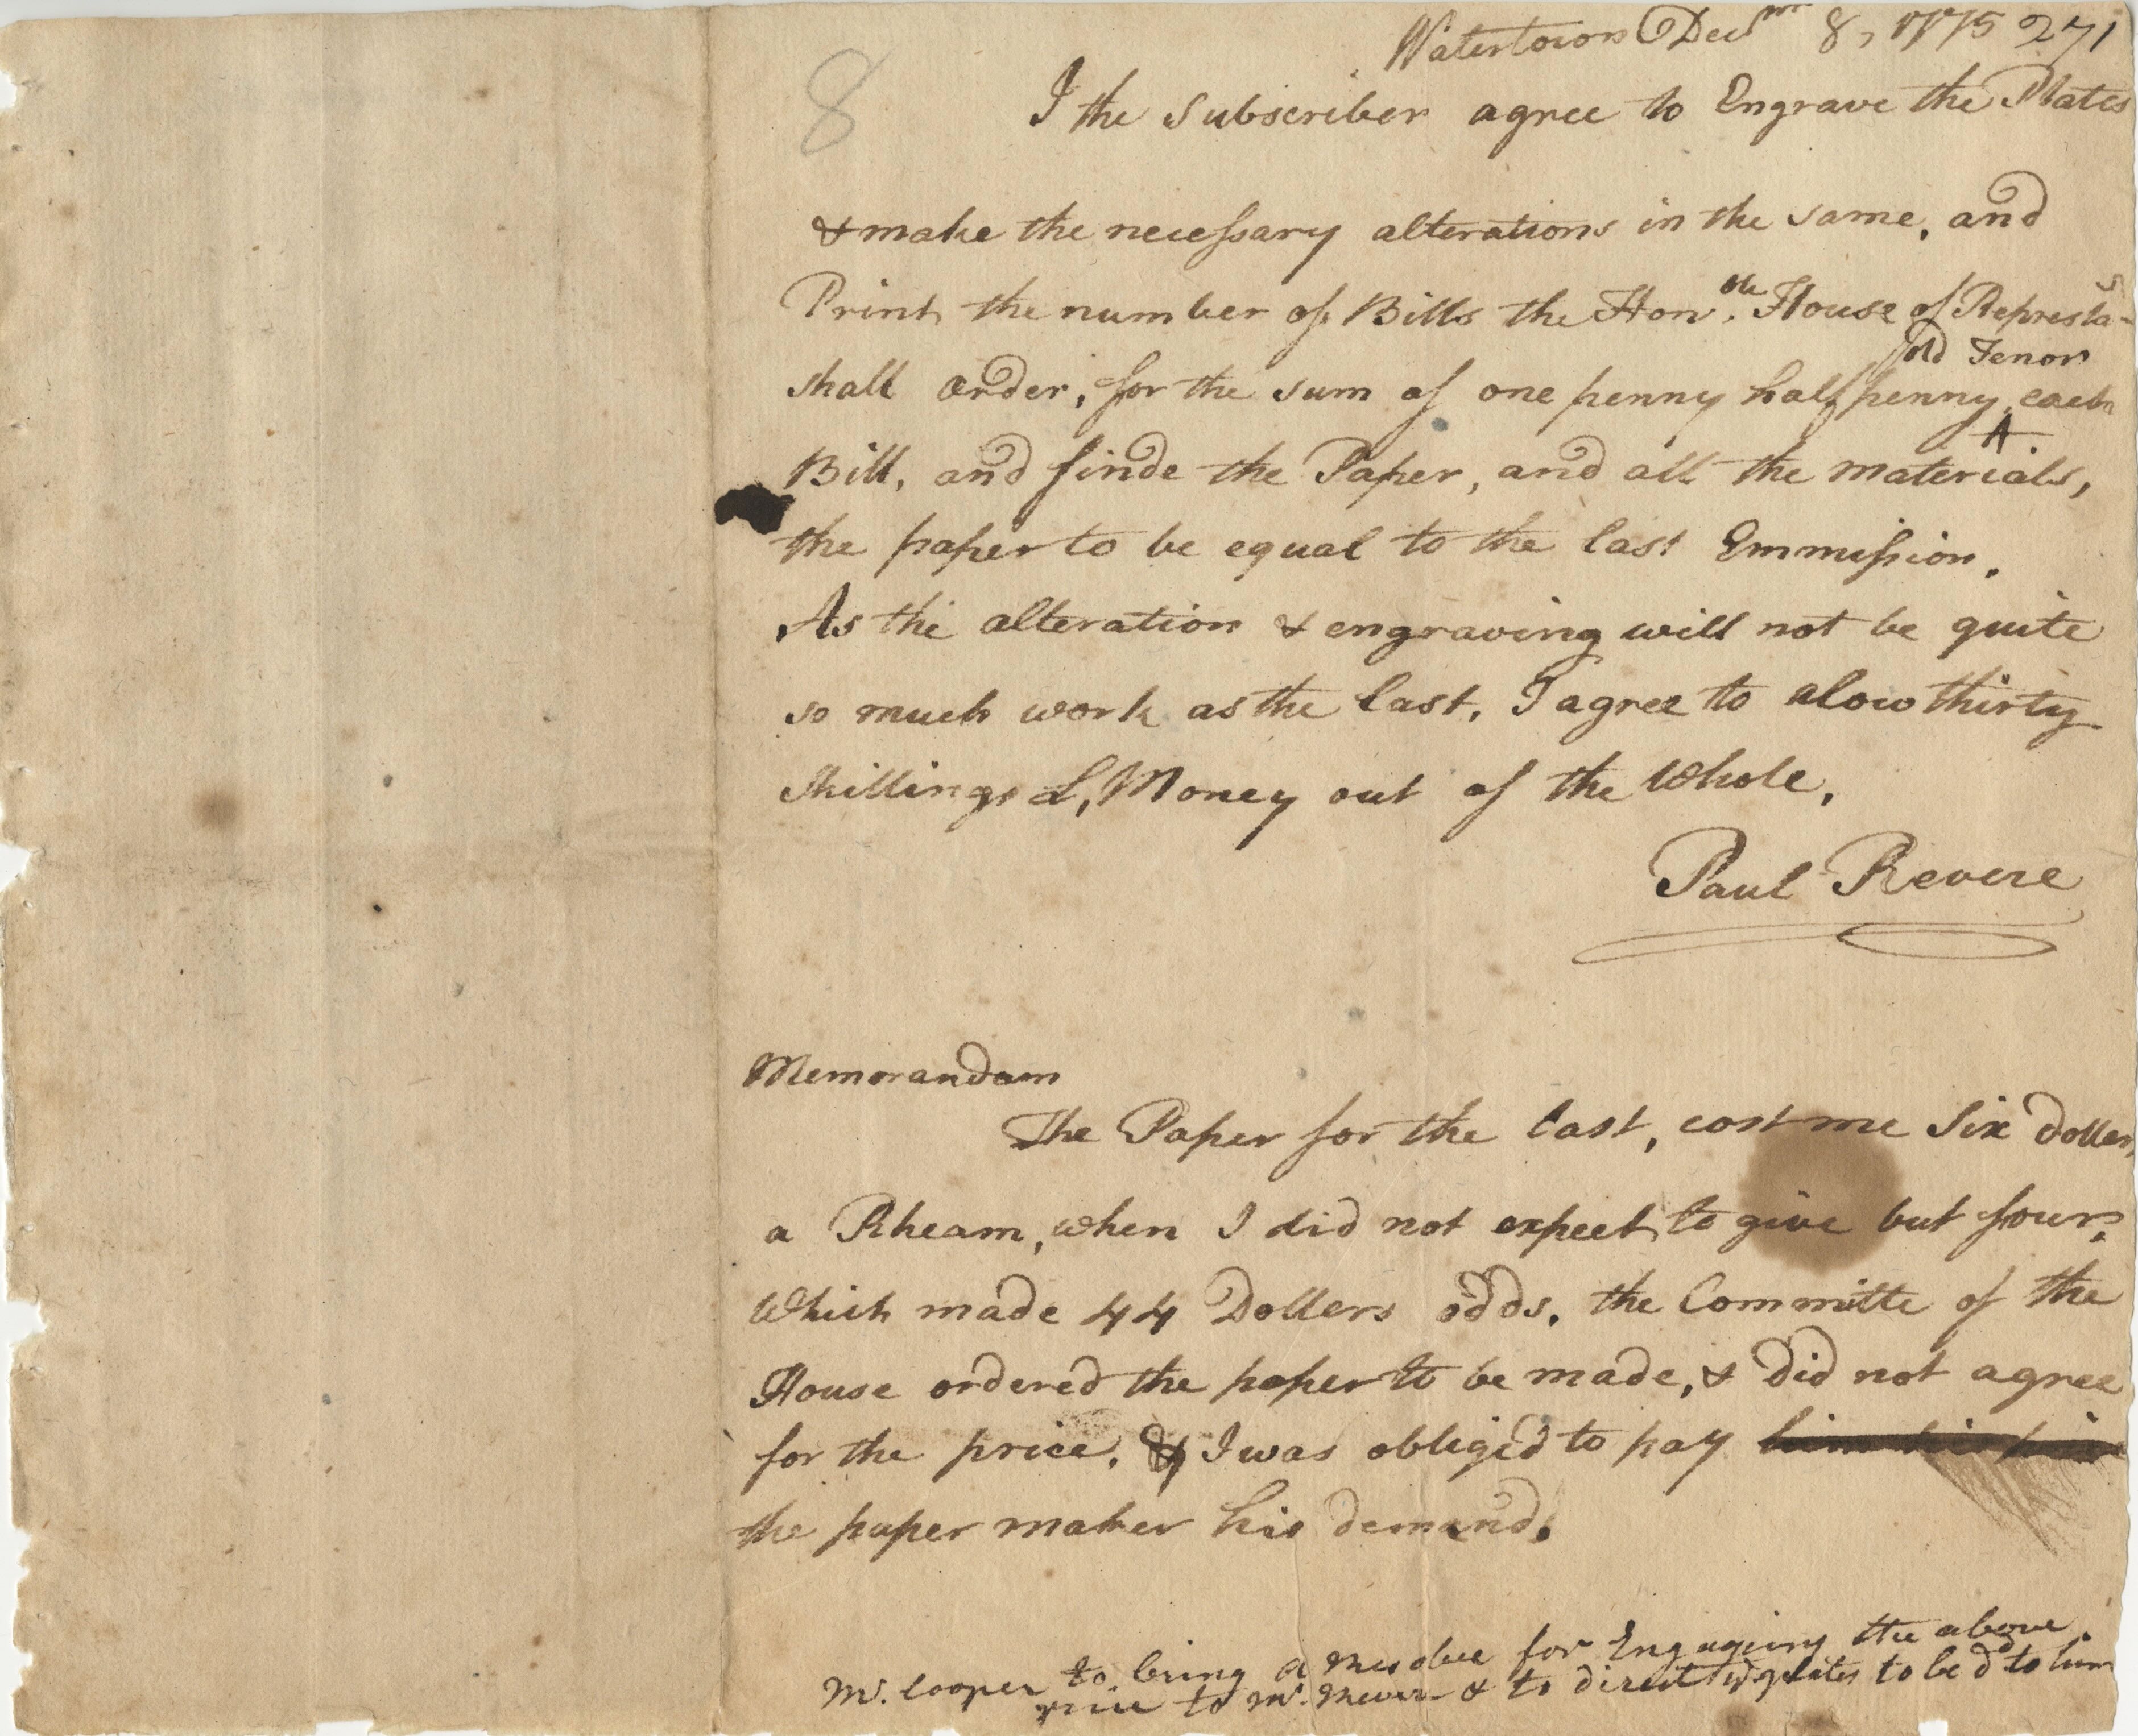 Watertown Decmr 8, 1775 271
8
I the Subscriber agree to Engrave the Plates
& make the necessary alterations in the same, and
Print the number of Bills the Honble. House of Represtas
old Tenor
shall order, for the sum of one penny half penny each
Bill, and finde the Paper, and all the materials,
the paper to be equal to the last Emmission.
As the alteration & engraving will not be quite
so much work as the last, I agree to alow thirty
Shillings L, Money out of the Whole,
Paul Revere
Memorandam
The Paper for the last, cost me Six Dollers
a Rheam, when I did not expect to give but four,
Which made 44 Dollers odds. the Committe of the
House ordered the paper to be made, & did not agree
for the price. & I was obliged to pay him his
the paper maker his demand.
Mr. Cooper to bring a Resolve for Engageing the above
to Mr. Revere & to direct ye plates to be dd to him